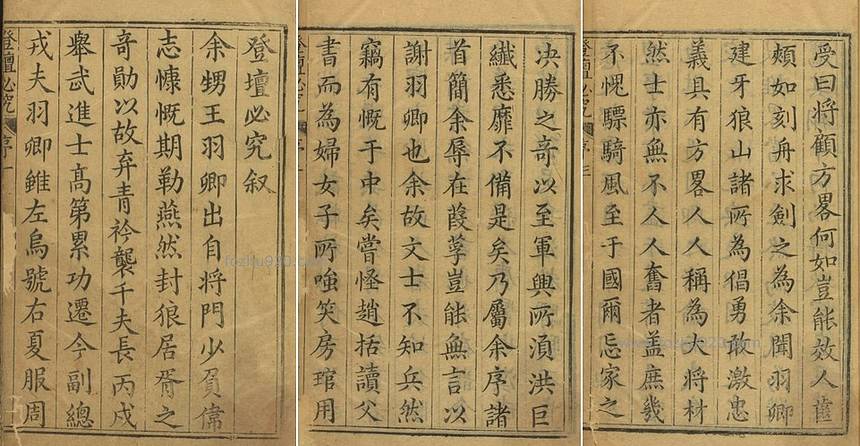 登壇必究叙
余甥王羽卿出自將門少負偉
志慷慨期勒燕然封狼居胥之
奇勛以故弃青衿襲千夫長丙戍
舉武進士高第累功遷今副總
戎夫羽卿雖左烏號右夏服周
登壇必究 序一
决勝之奇以至軍興所湏洪巨
纖悉靡不備是矣乃屬余序諸
首簡余辱在葭莩豈能無言以
謝羽卿也余故文士不知兵然
竊有慨于中矣嘗怪趙括讀父
書而為婦女子所嗤笑房琯用
登壇必究 序二
受曰將顧方畧何如豈能效人
頰如刻舟求劍之為余聞羽卿
建牙狼山諸所為倡勇敢激忠
義具有方畧人人稱為大將材
然士亦無不人人奮者盖庶幾
不愧驃騎風至于國爾忘家之
登壇必究 序三